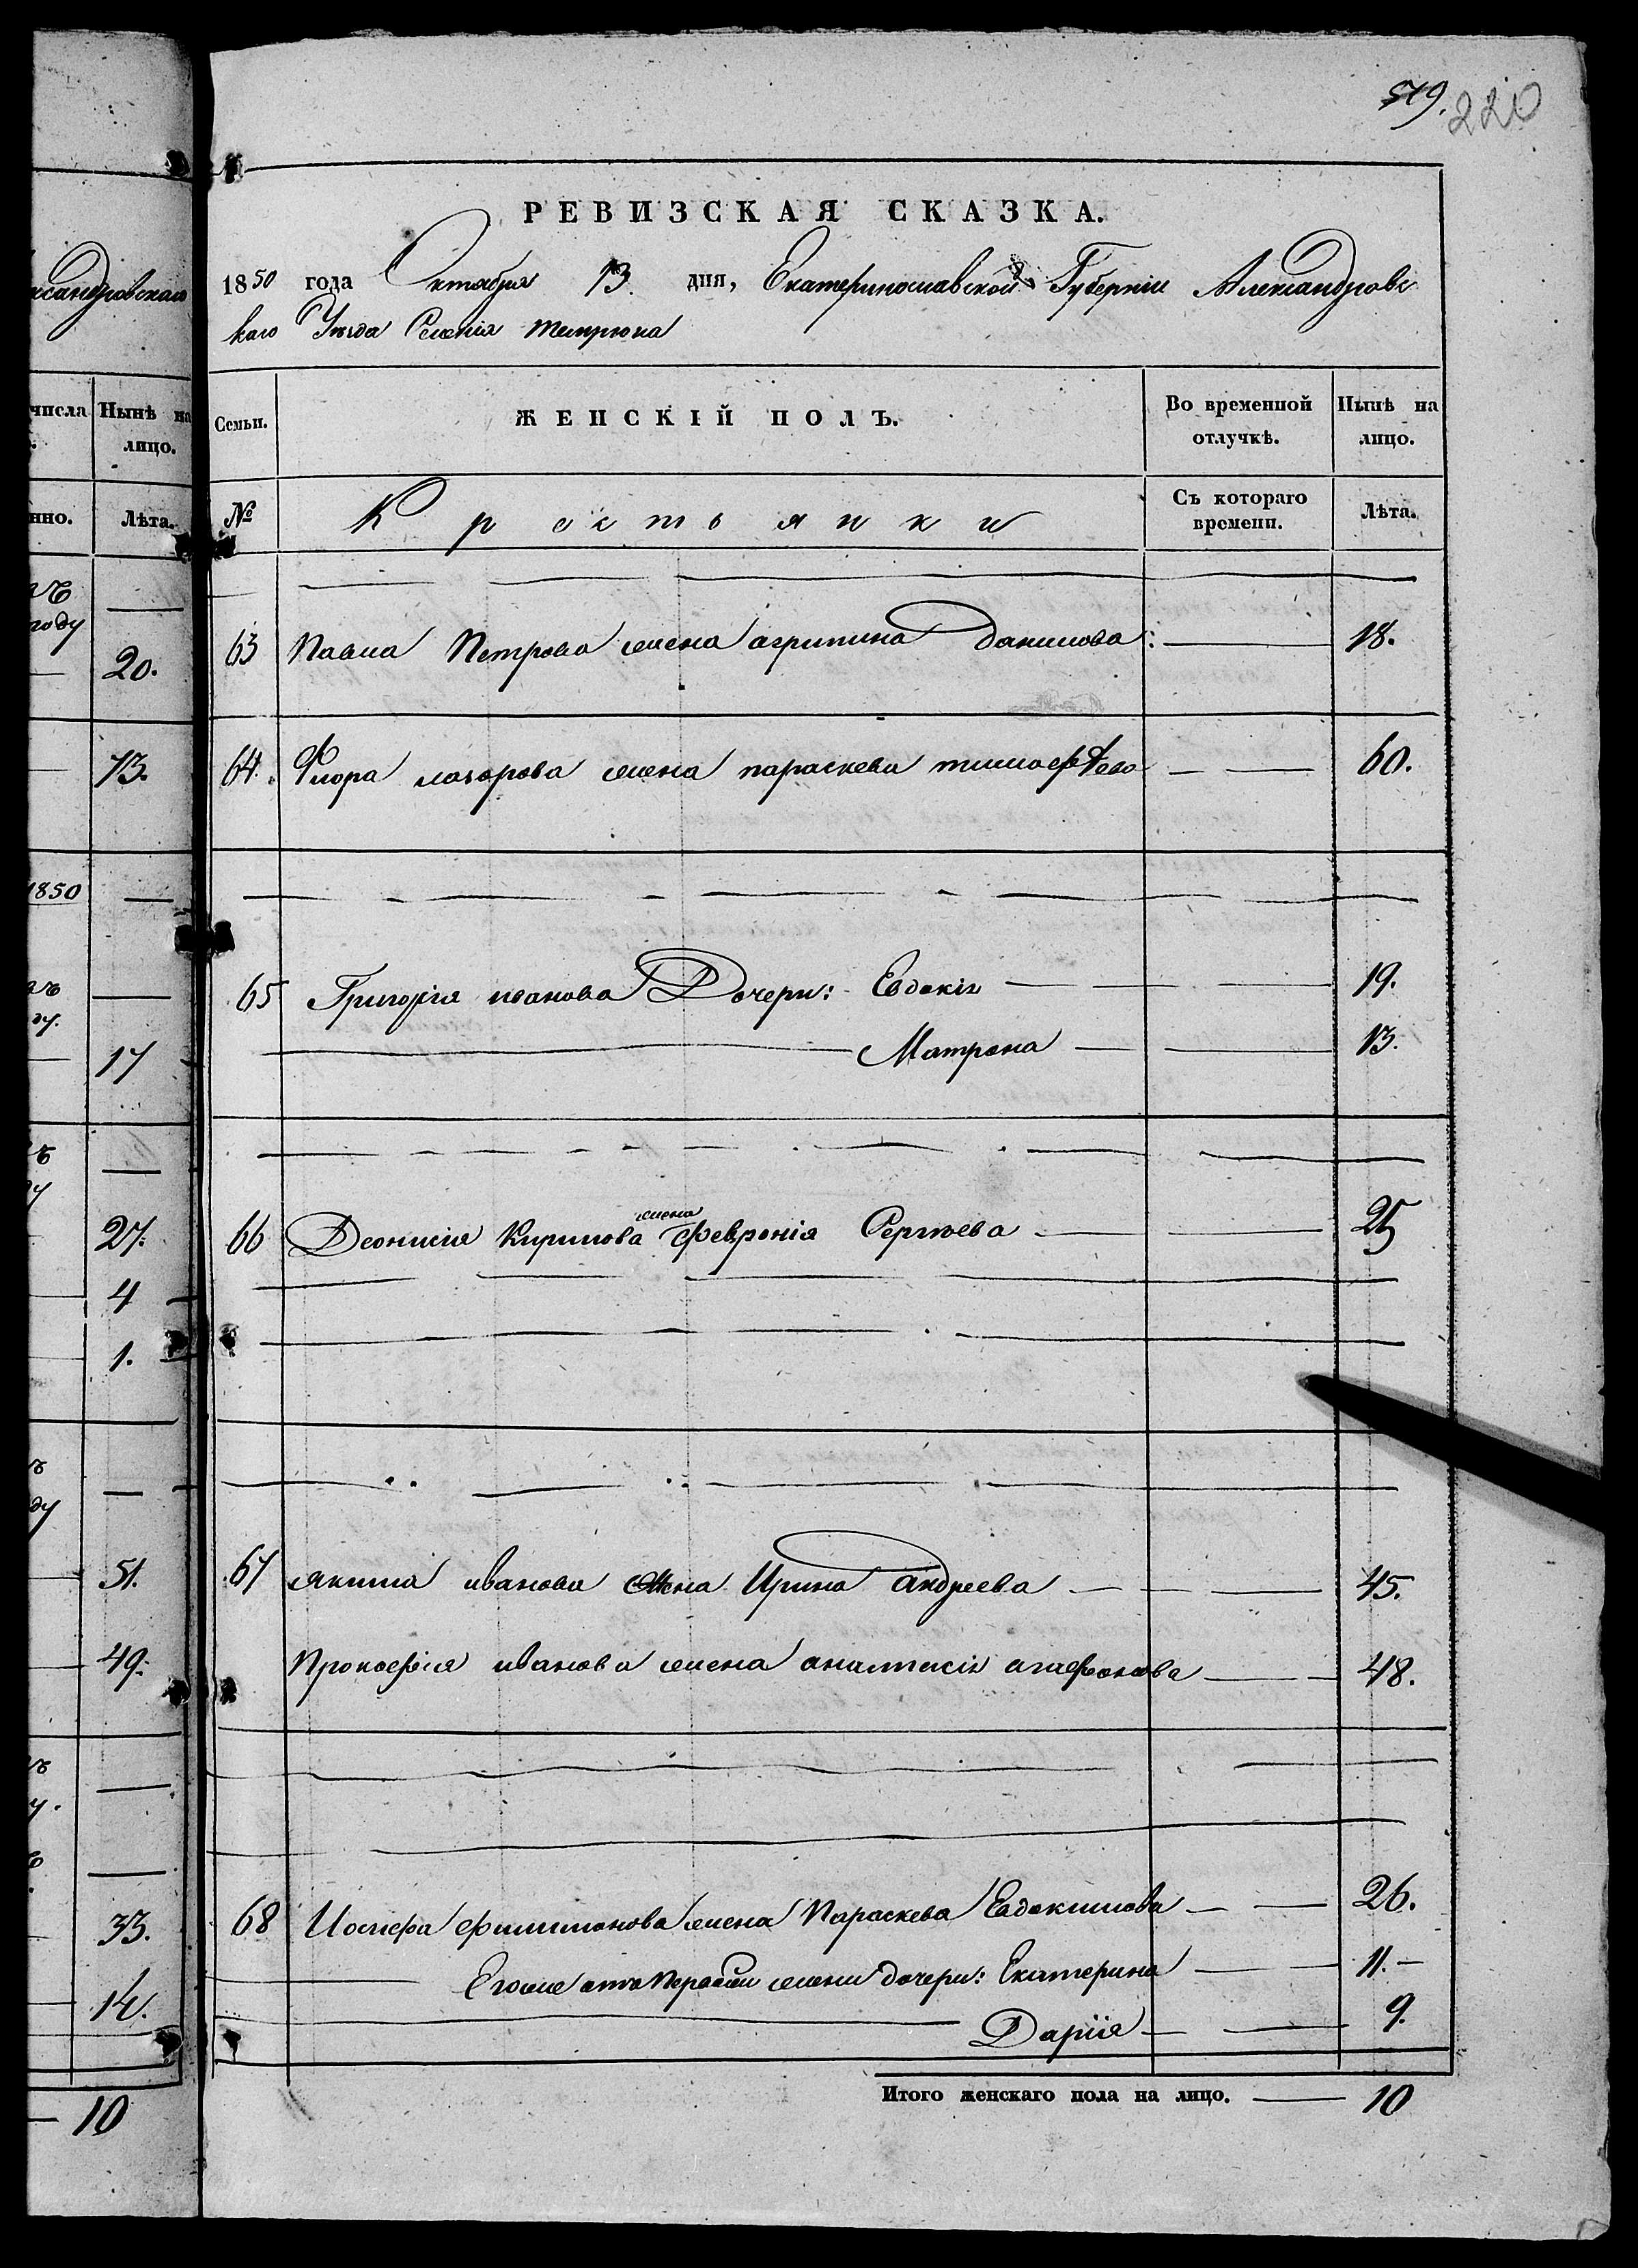 579. 220
РЕВИЗСКАЯ СКАЗКА.
1850 года Октября 13 дня, Екатеринославской Губерніи Александровс
каго Уѣзда Селенія Темрюка
числа
Нынѣ на
лицо.
Семьи.
ЖЕНСКІЙ ПОЛЪ.
Во временной
отлучкѣ.
Нынѣ на
лицо.
нно.
Лѣта.
№
Крестьянки
Съ котораго
времени.
Лѣта.
году
20.
63 Павла Петрова жена агрипина данилова: 18.
13.
64. Флора лазарова жена параскева тимофѣева 60.
1850
65 Григорія иванова Дочери: Евдокія 19.
17
Матрона 13.
27.
66 Деонисія Кирилова жена Февронія Сергѣева 25
4
1.
51.
67 якима иванова жена Ирина андреева 45.
49.
Прокофія иванова жена анастасія агафонова 48.
33.
68 Иосифа филимонова жена Параскева Евдокимова 26.
Егоже отъ первой жены дочери: Екатерина 11.
14.
Дарїя 9.
10
Итого женскаго пола на лицо. 10